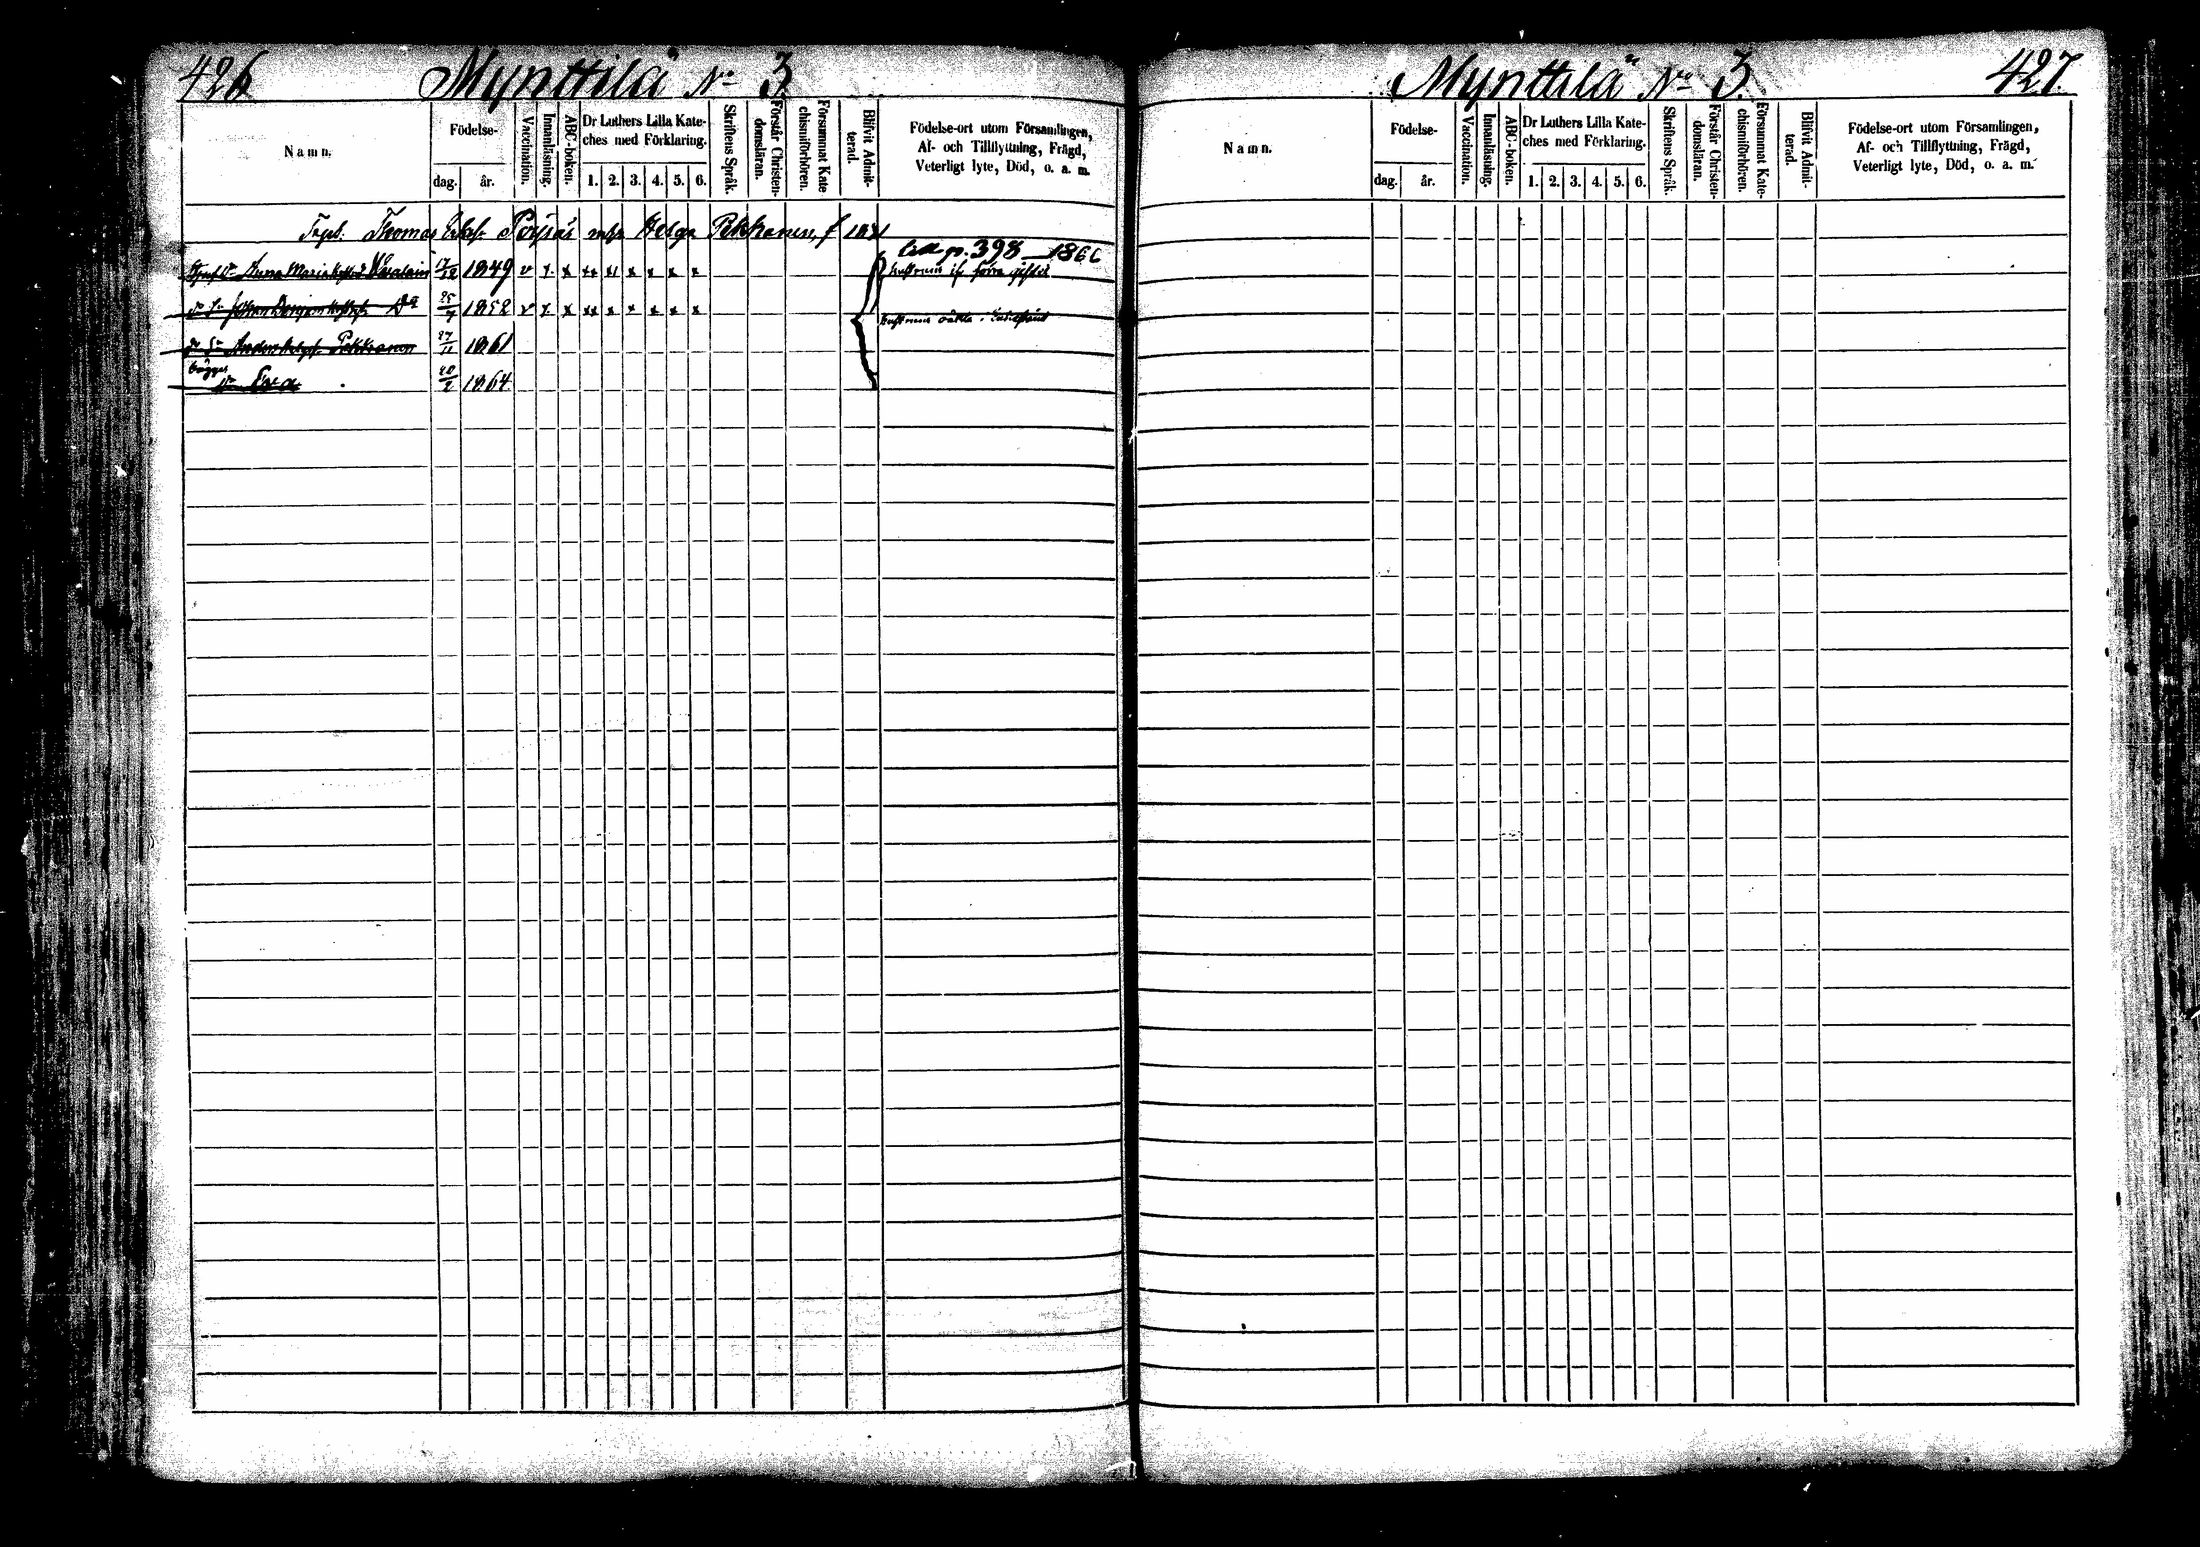 426 Mynttilä No 3
Namn.
Födelse-
dag. år.
Vaccination.
Innanläsning.
ABC-boken.
Dr Luthers Lilla Kate-
ches med Förklaring.
1. 2. 3. 4. 5. 6.
Skriftens Språk.
Förstår Christen-
domsläran.
Försummat Kate
chismiförhören.
Blifvit Admit-
terad.
Födelse-ort utom Församlingen,
Af- och Tillflyttning, Frägd,
Veterligt lyte, Död, o. a. m.
Thomas Helga Pekkanen, f 1831
till p. 398 1866
Anna Maria 17/12 1849 v x x x x x x x
förra giftet
Johan 25/7 1852 v x x x x x x x
Anders Pekkanen 27/11 1861
Eva 1864
Mynttilä No 3. 427.
Namn.
Födelse-
dag. år.
Vaccination.
Innanläsning.
ABC-boken.
Dr Luthers Lilla Kate-
ches med Förklaring.
1. 2. 3. 4. 5. 6.
Skriftens Språk.
Förstår Christen-
domsläran.
Försummat Kate-
chismiförhören.
Blifvit Admit-
terad.
Födelse-ort utom Församlingen,
Af- och Tillflyttning, Frägd,
Veterligt lyte, Död, o. a. m.